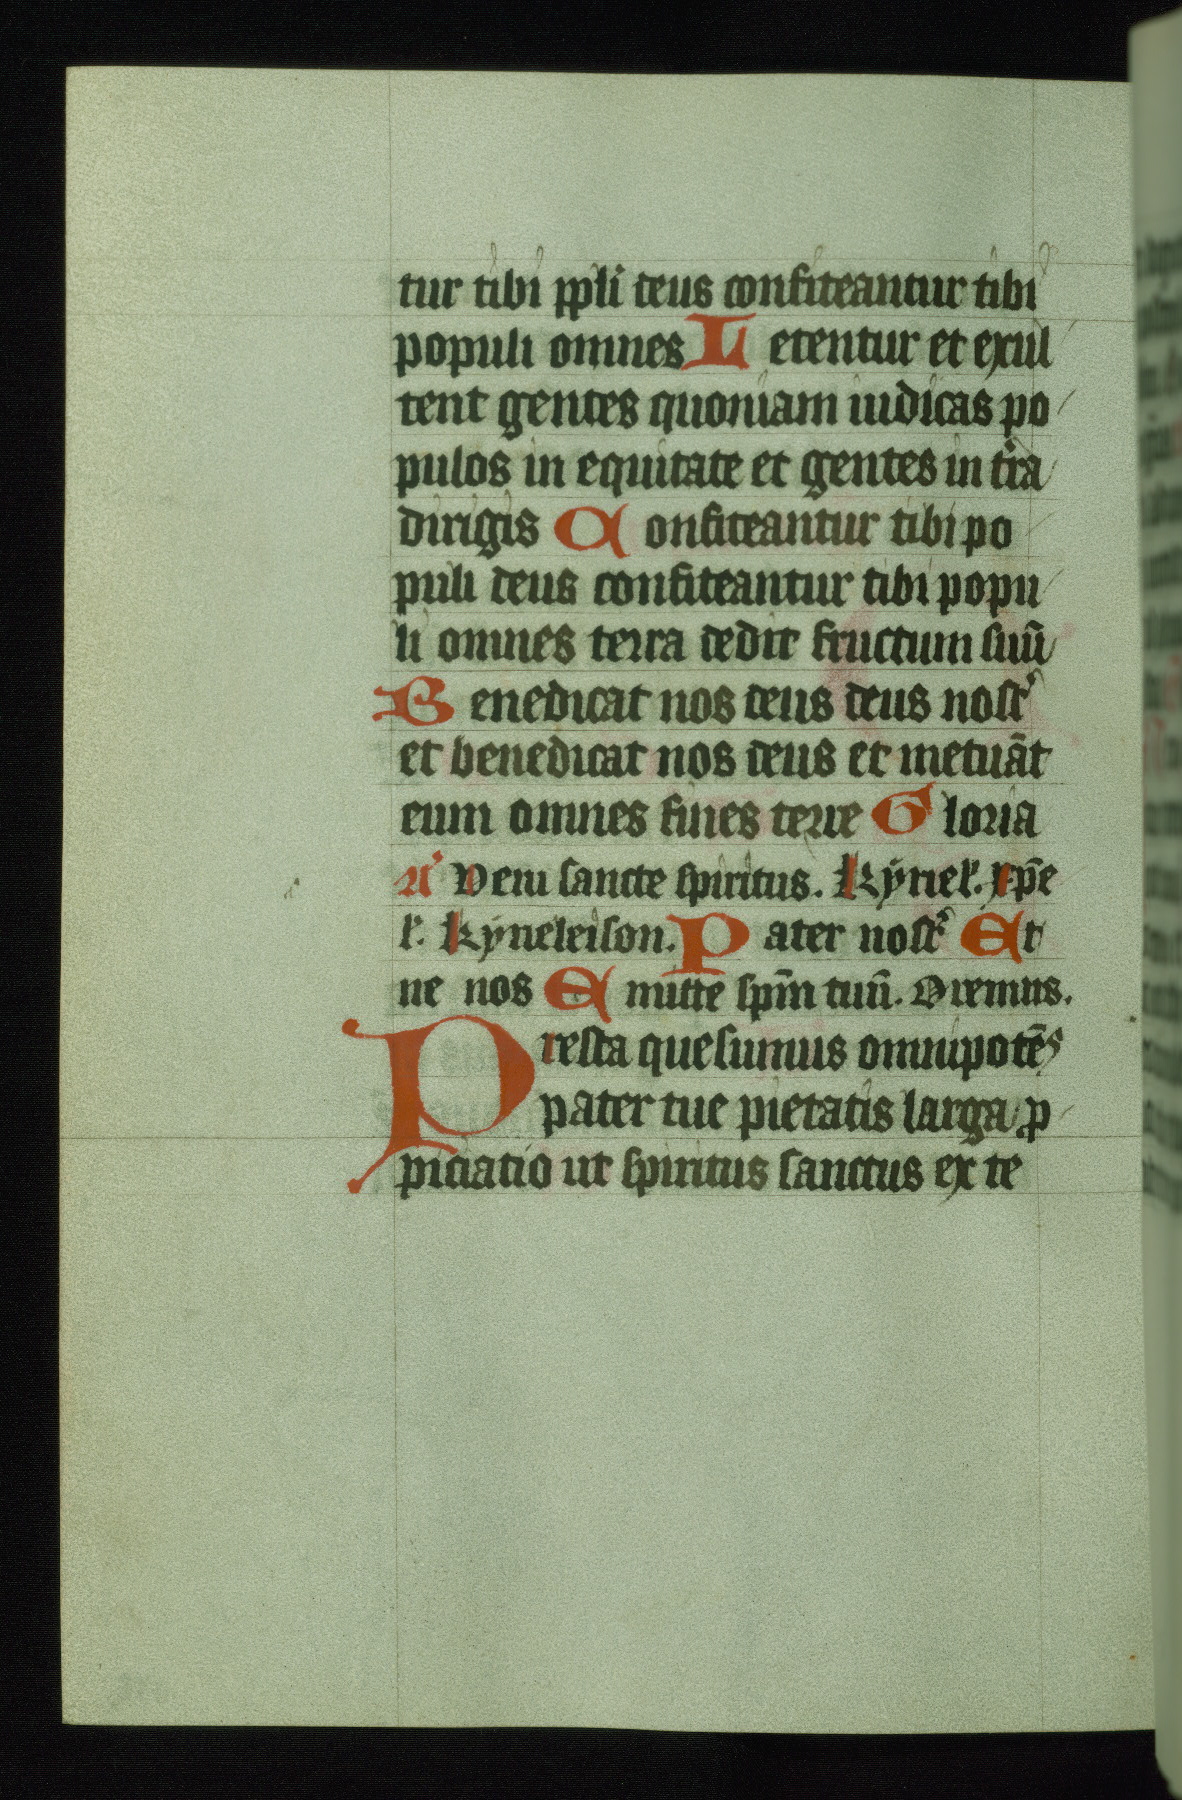 tur tibi ppl̄i deus confiteantur tibi
populi omnes Letentur et exul
tent gentes quoniam iudicas po
pulos in equitate et gentes in tr̄a
dirigis Confiteantur tibi po
puli deus confiteantur tibi popu
li omnes terra dedit fructum suū
Benedicat nos deus deus nostʼ
et benedicat nos deus et metuāt
eum omnes fines terre Gloria
Aʼ Veni sancte spiritus. Kÿriel̓. xp̄e
l̓. Kÿrieleison. Pater nostʼ Et
ne nos Emitte spm̄ tuū. Oremus.
Presta quesumus omnipotēs
pater tue pietatis larga ꝓ
piciatio ut spiritus sanctus ex te